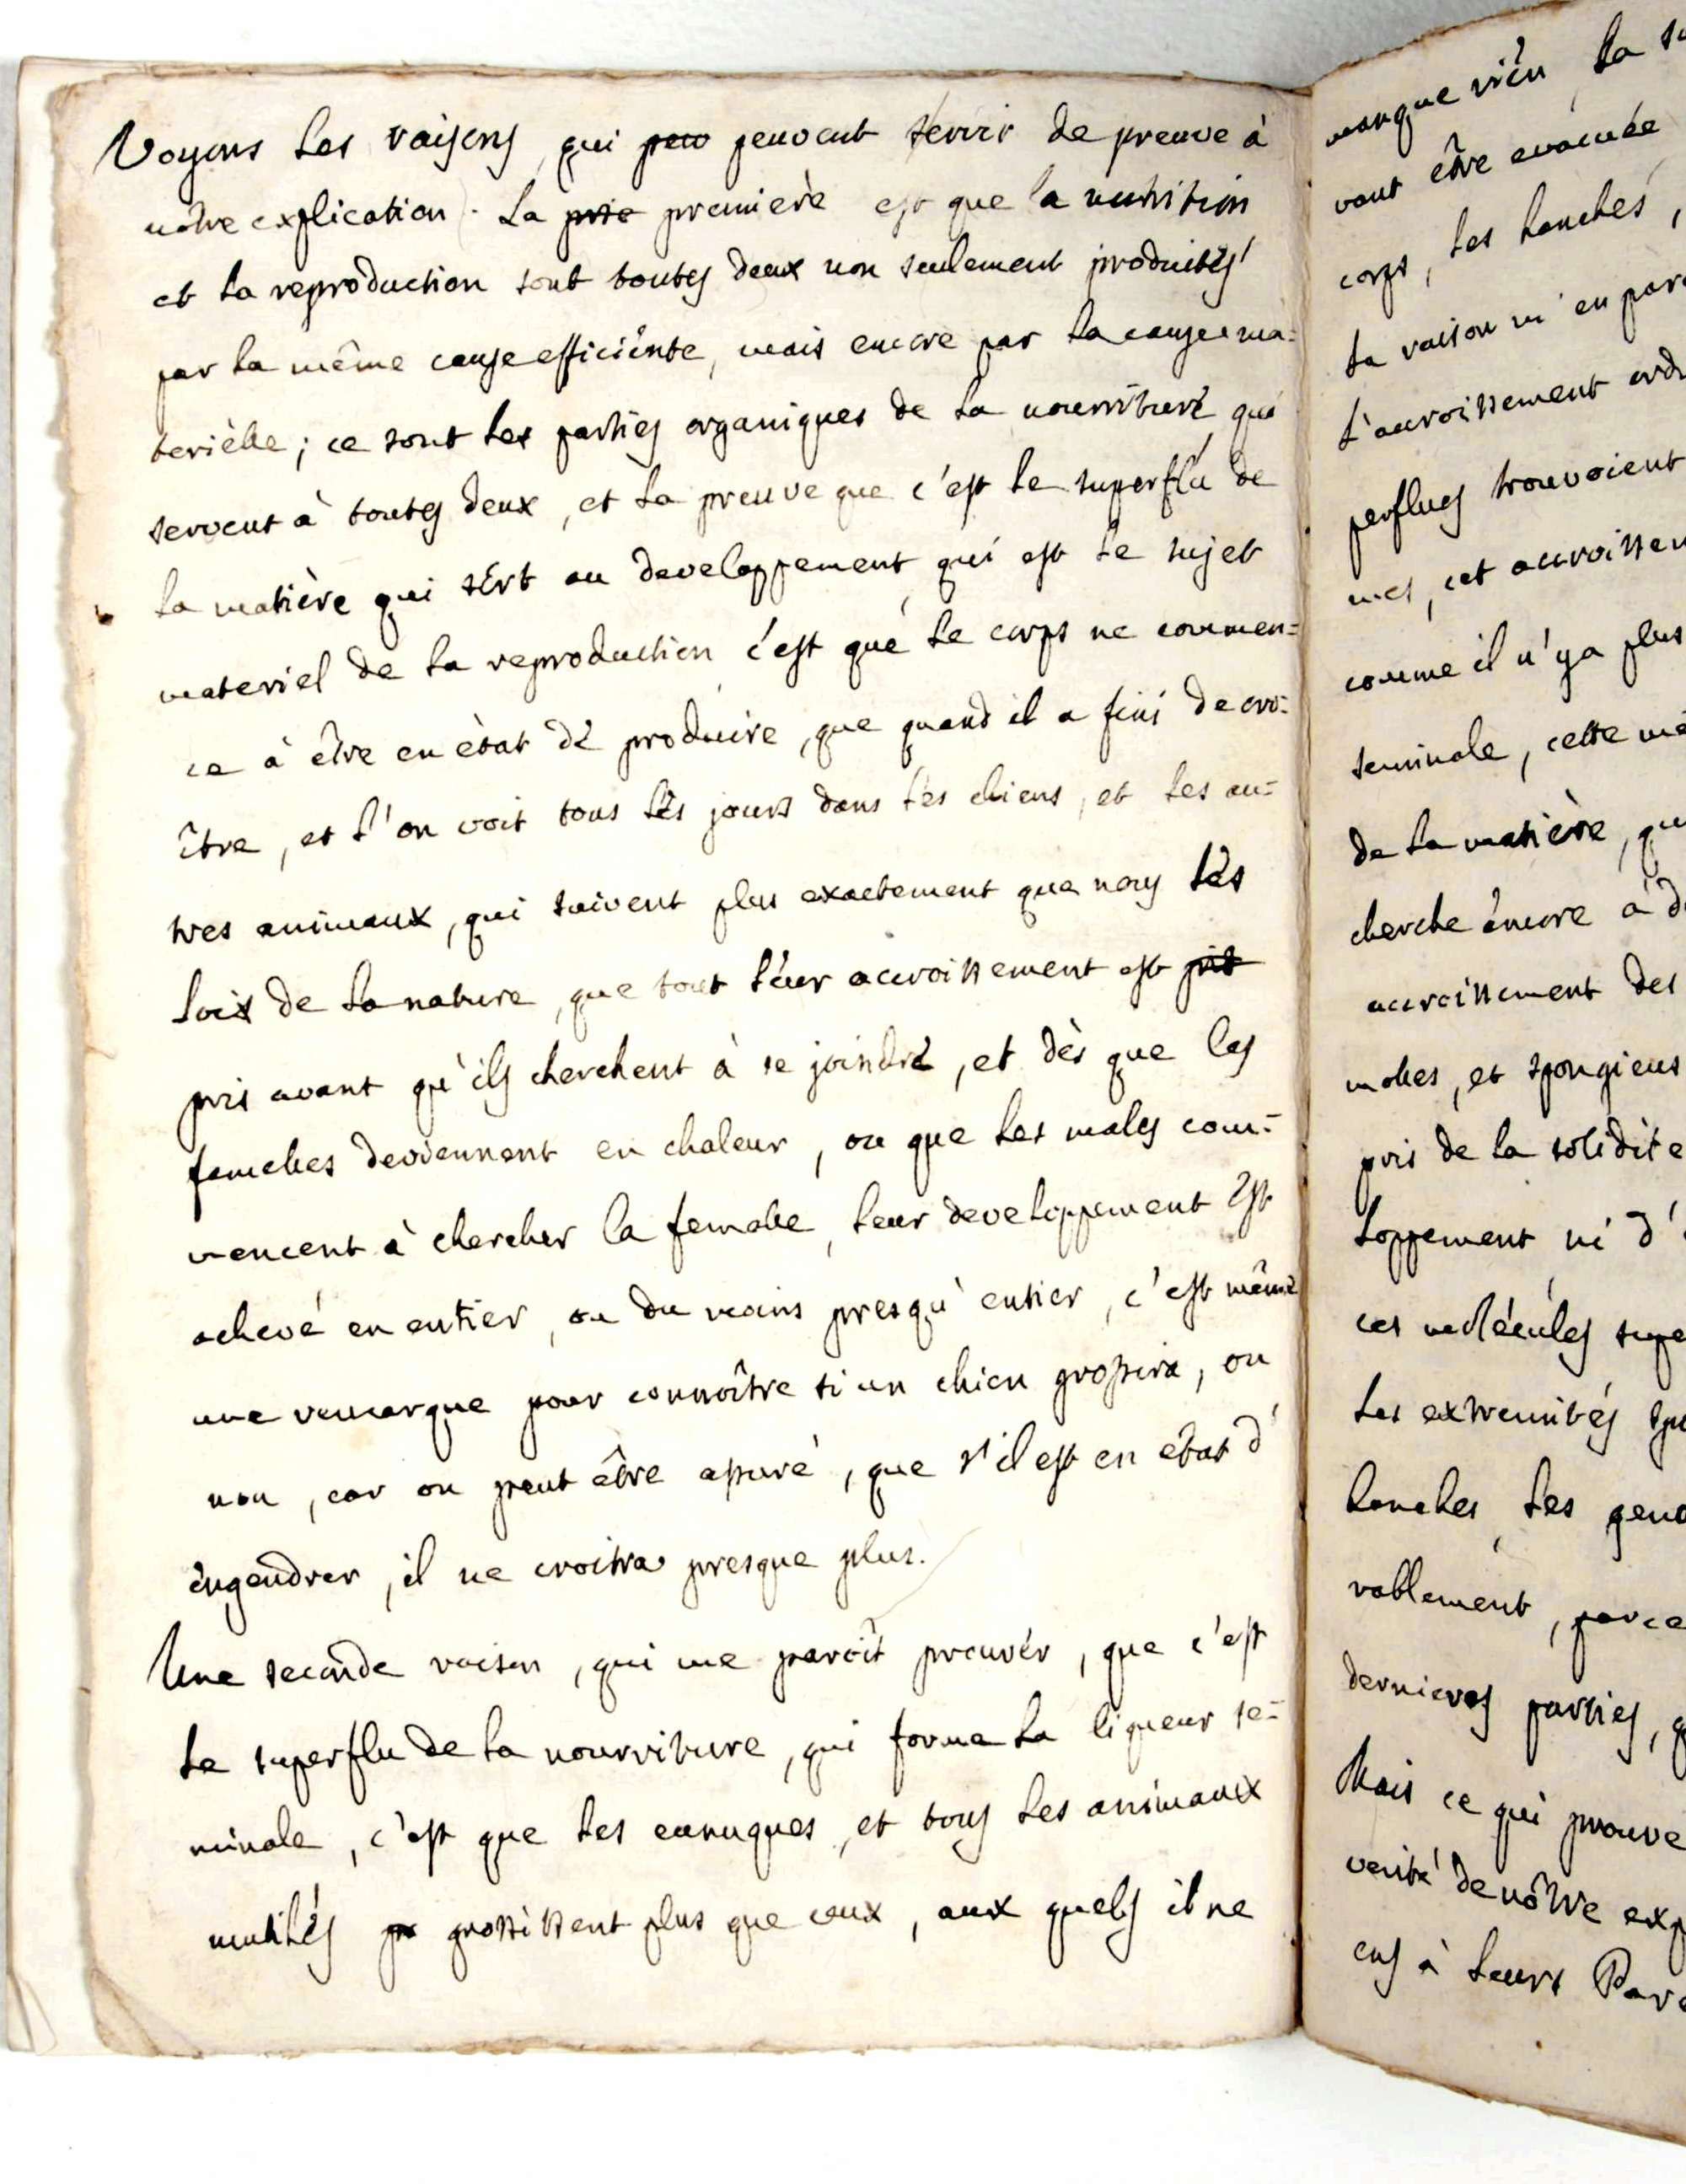 Voyons les raisons qui peu peuvent servir de preuve à
nôtre explication. La prie premiere est que la nutrition
et la reproduction sont toutes deux non seulement produites
par la même cause efficiente, mais encore par la cause ma=
terièlle; ce sont les parties organiques de la nourriture qui
servent à toutes deux, et la preuve que c'est le superflu de
la matière qui sert au developpement, qui est le sujet
materiel de la reproduction c'est que le corps ne commen=
ce à être en état de produire, que quand il a fini de cro=
ître, et l'on voit tous les jours dans les chiens, et les au=
tres animaux, qui suivent plus exactement que nous les
loix de la nature, que tout leur accroissement est prit
pris avant qu'ils cherchent à se joindre, et dès que les
femelles deviennent en chaleur, ou que les males com=
mencent à chercher la femelle, leur developpement est
achevé en entier, ou du moins presqu'entier, c'est même
une remarque pour connoître si un chien grossira, ou
non, car on peut être assuré, que s'il est en état d'
engendrer, il ne croitra presque plus.
Une seconde raison, qui me paroît prouver, que c'est
le superflu de la nourriture, qui forme la liqueur se=
minale, c'est que les eunuques, et tous les animaux
mutilés gr grossissent plus que ceux, aux quels il ne
manque rièn, la
vant être evacuée
corps, les hanches,
la raison m'en par
l'accroissement ord
perflues trouvoient
mes, cet accroissem
comme il n'y a plus
seminale, cette mê
de la matière, qu
cherche encore à d
accroissement des
molles, et spongieus
pris de la solidite
loppement ni d'
ces molécules supe
les extremités spo
hanches, les geno
rablement, parce
dernieres parties, q
Mais ce qui prouve
verité de nôtre exp
ens à leurs Par